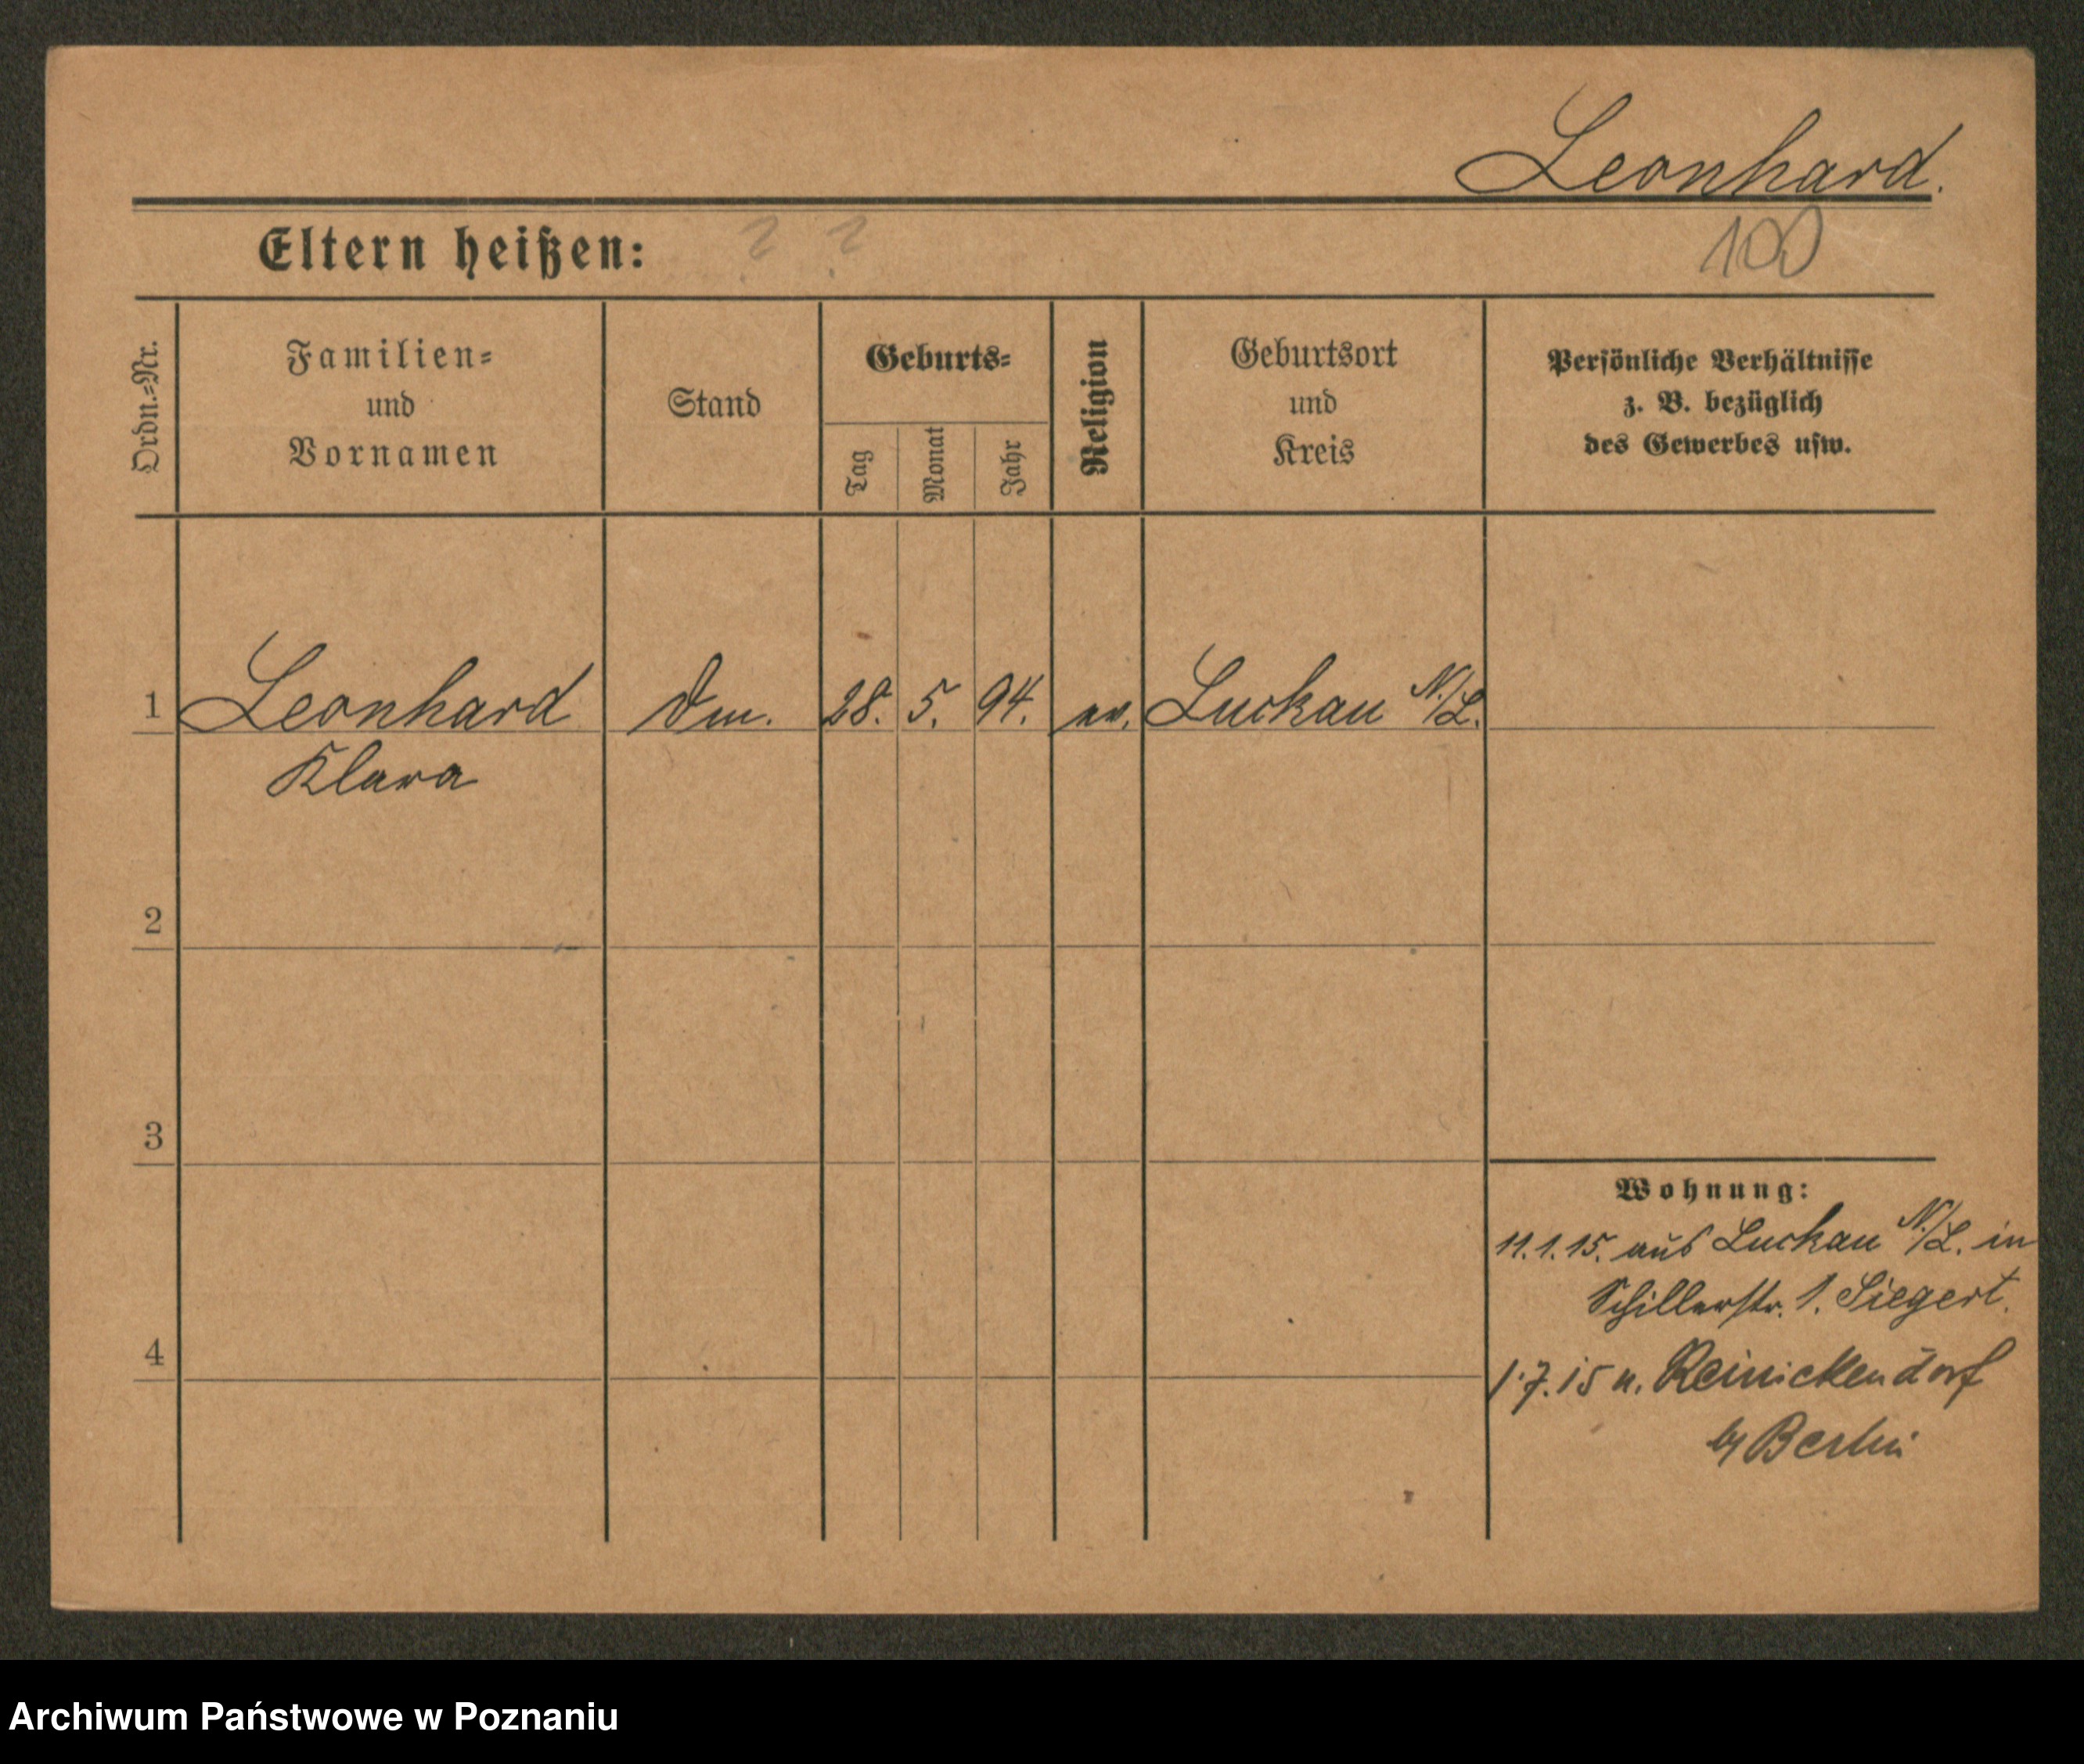 Leonhard.
Eltern heißen: ? ?
100
Ordn.=Nr.
Familien=
und
Vornamen
Stand
Geburts=
Tag
Monat
Jahr
Religion
Geburtsort
und
Kreis
Persönliche Verhältnisse
z. B. bezüglich
des Gewerbes usw.
1 Leonhard 28. 5. 94. ev. Luckau N./L.
Klara
2
3
4
Wohnung:
11.1.15. aus Luckau N./L. in
Schillerstr. 1. Siegert.
1.7.15 n. Reinickendorf
b/ Berlin
Archiwum Państwowe w Poznaniu